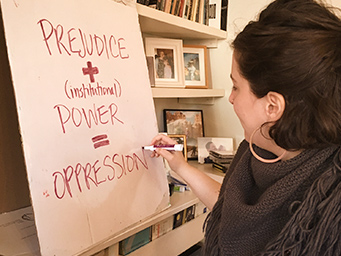 PREJUDICE
+
(institutional)
POWER
=
OPPRESSION